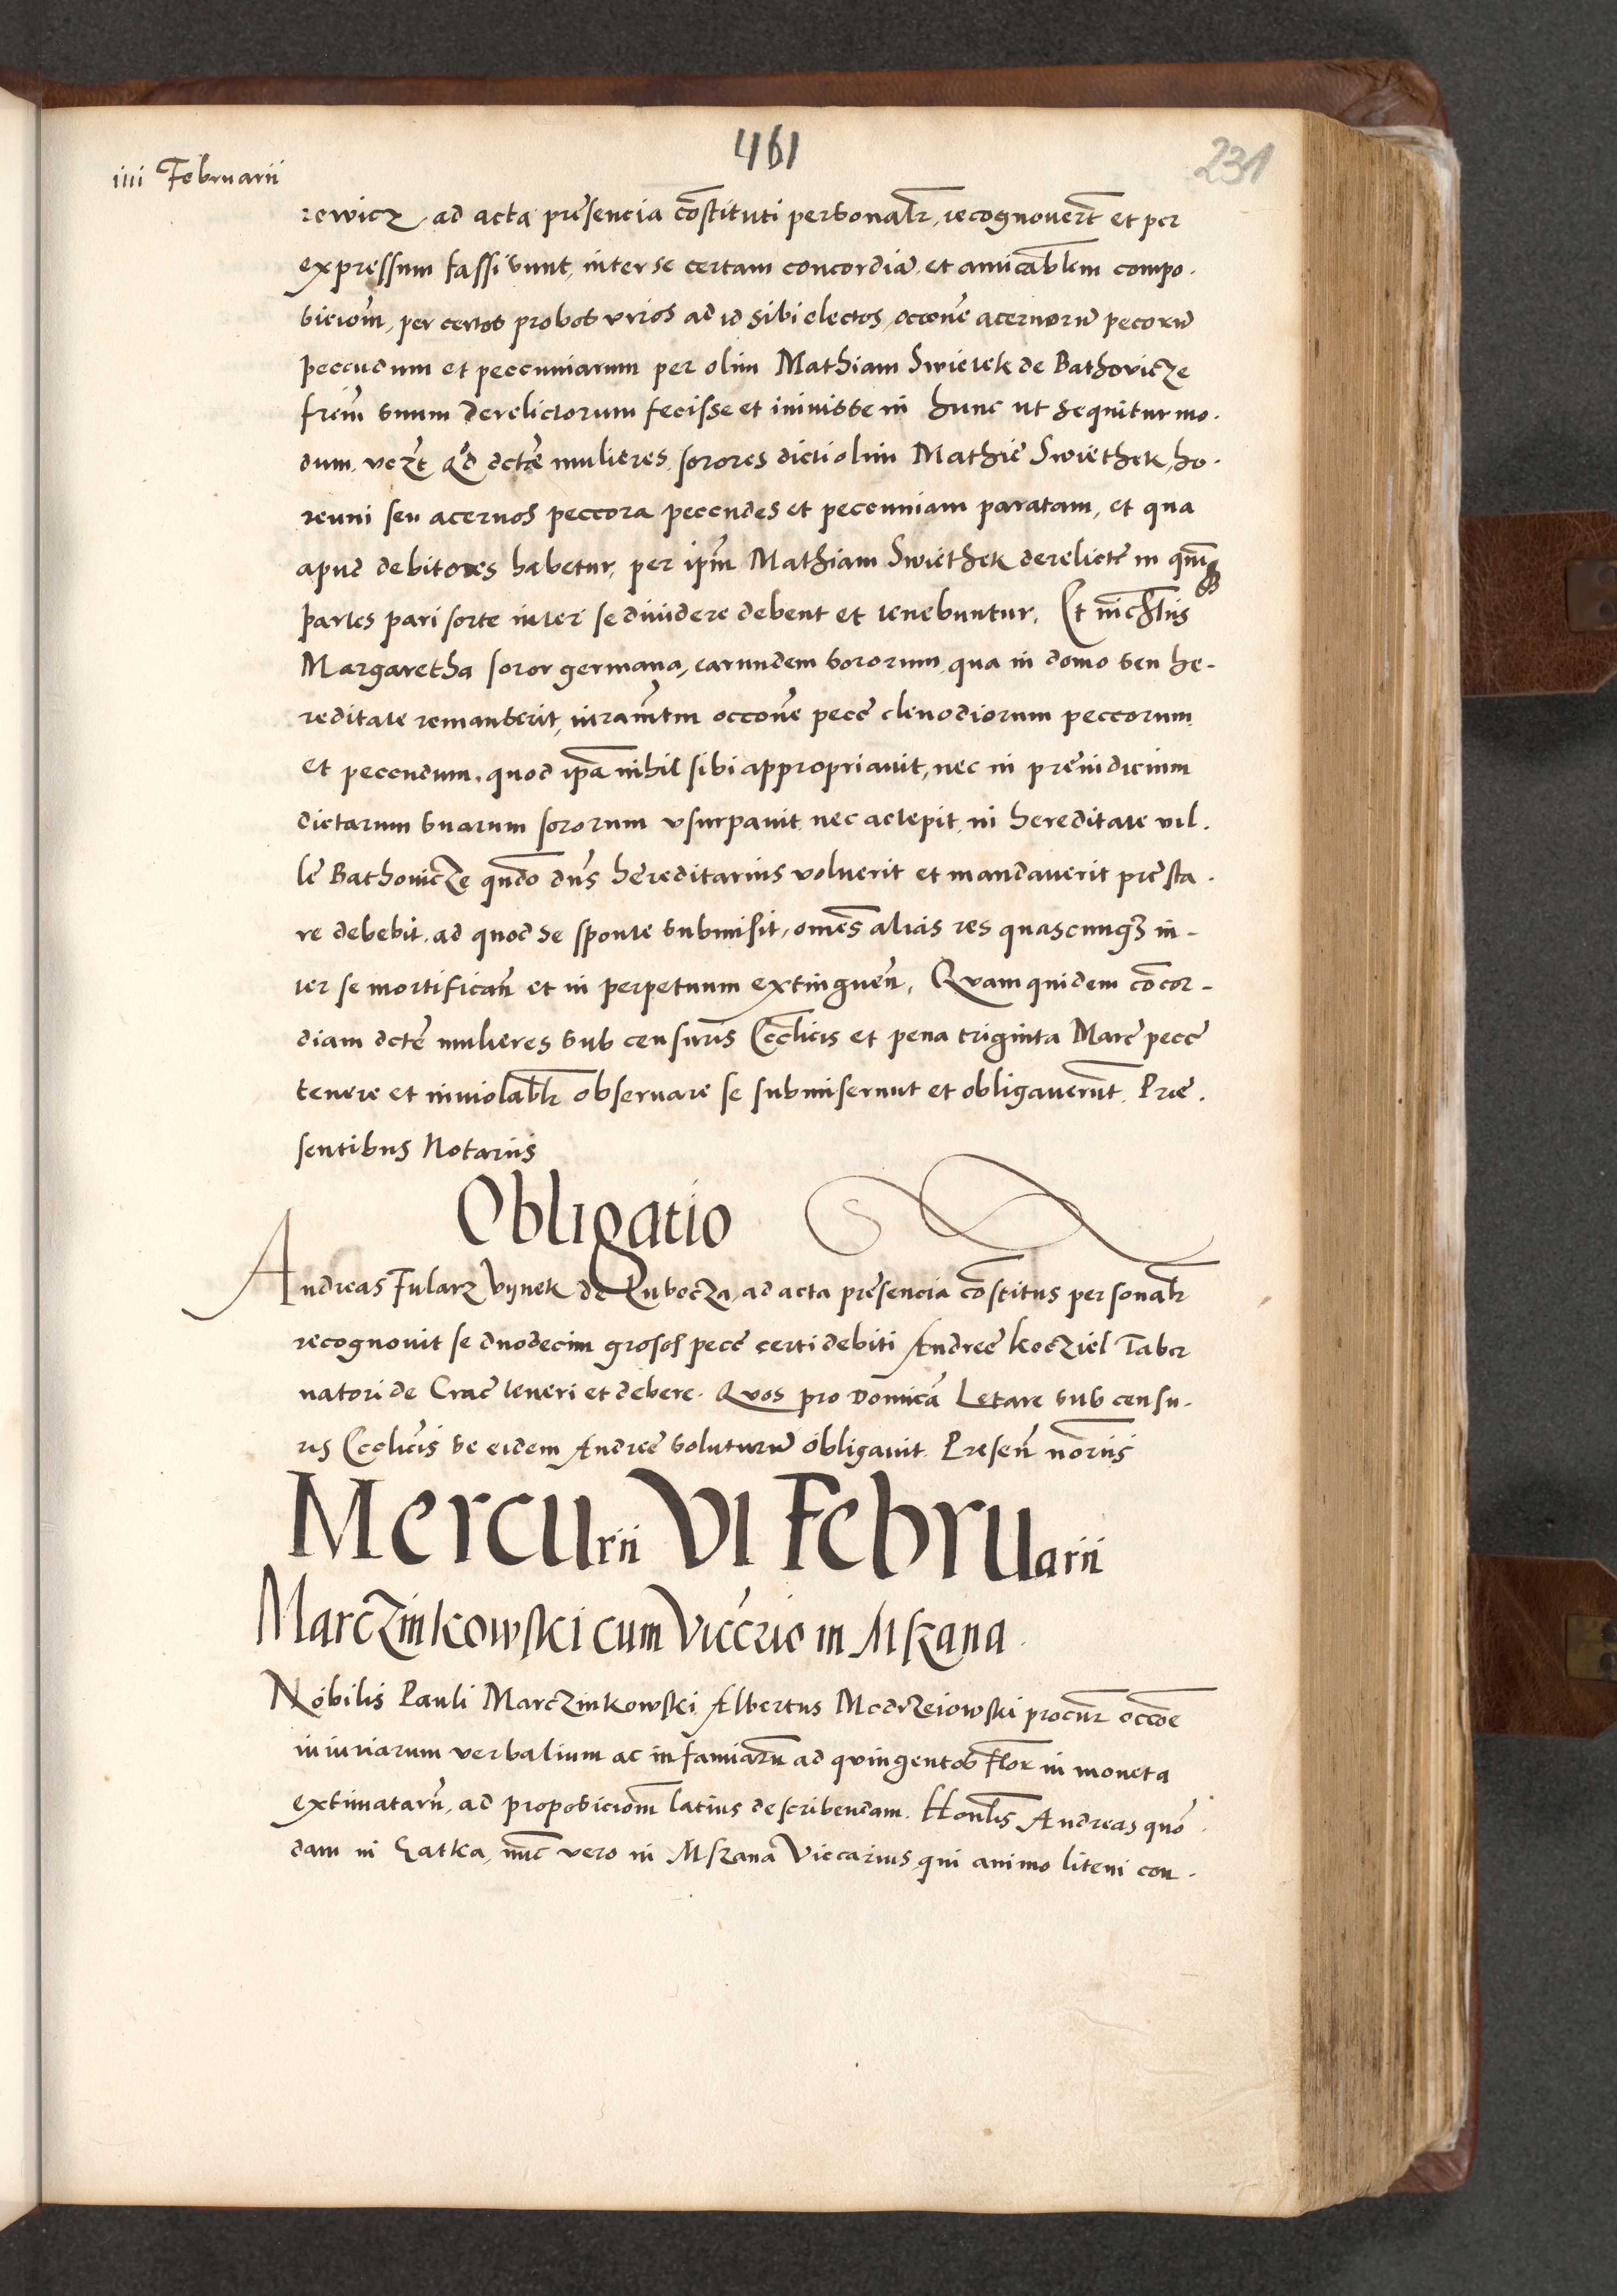 461
231
iiii Februarii
rewicz ad acta presencia cōstituti personałr, recognouert̄ et per
expressum fassi sunt, inter se certam concordiā et amicabłem compo-
siciom̄, per certos probos viros ad id sibi electos, occone acernorū pecorū
peccudum et peccuniarum per olim Mathiam Swietek de Bathovicze
frem̄ suum derelictorum fecisse et iniuisse in hunc ut sequitur mo-
dum, vezt Qd dctē mulieres, sorores dicti olim Mathię Swiethek, ho-
reum seu acernos peccora peccudes et peccuniam paratam, et qua
apud debitores habetur, per ipm̄ Mathiam Swiethek derelictę in qnqȝ
partes pari sorte inter se diuidere debent et tenebuntur. Et
Margaretha soror germana, earundem sororum, qua in domo seu he-
reditate remanserit, iuramtm̄ occone pecc̄ clenodiorum peccorum
et peccudum, quod ipā nihil sibi appropriauit, nec in preiudicium
dictarum suarum sororum vsurpauit nec accepit, in hereditate vil-
lę Bathovicze qn̄do dn̄s hereditarius voluerit et mandauerit presta-
re debebit, ad quod se sponte submisit, omēs alias res quascunqȝ in-
ter se mortifican̄ et in perpetuum extinguen̄, Quam quidem cōcor-
diam dctē mulieres sub censuris Ecclicis et pena triginta Marc̄ pecc̄
tenere et inuiolabłr obseruare se submiserunt et obligauerunt̄. Prę-
sentibus Notariis
Obligatio
Andreas Fularz Vynek de Lubocza, ad acta presencia cōstitus personałr
recognouit se duodecim grosos pecc̄ certi debiti Andreę Kocziel Taber
natori de Crac̄ teneri et debere. Quos pro Domicā Letare sub censu-
ris Ecclicis se eidem Andreę soluturū obligauit. Presen̄ norīis
Mercurii VI Februarii
Marczinkowski cum Viccrio in Mszana
Nobilis Pauli Marczinkowski Albertus Modrzeiowski procur̄ occōe
iniuriarum verbalium ac infamiarū ad quingentos Flor̄ in moneta
extimatarū, ad proposiciom̄ latius describendam. Honłis Andreas quō-
dam in Łatka, nūc vero in Mszana Viccarius, qui animo liteni con-